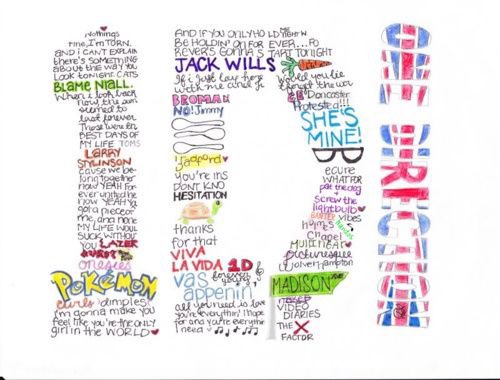 Nothings
fine, I'm TORN.
and i CAN'T EXPLAIN
there's SOMETHING
about the way you
look tonight. CATS
BLAME NIALL.
when i look back
now, the sun
seemed to
last forever
Those were the
BEST DAYS OF
MY LIFE TOMS
LARRY
STYLINSON
cause we be-
long together
now YEAH for-
ever united here
now YEAH
got a piece of
me, and honestly
MY LIFE WOULD
SUCK WITHOUT
YOU LAZER
QUEST
onesies
POKéMON
curls dimples!
i'm gonna make you
feel like you're the only
girl in the WORLD
AND IF YOU ONLY HOLD ME
BE HOLDIN' ON FOR EVER...
JACK WILLS
if i just lay here
BROMAN
NO! Jimmy
Jagford
you're ins
DONT KNO
HESITATION
thanks
for that
VIVA
LA VIDA 1D
forever
young
vas
appenin
all you need is love
you're everything i hope
for and you're everythin
i need
would you lie
forget the wor
Doncaster
Protested!!!
SHE'S
MINE!
ecure
WHAT FOR
pat the dog
screw the
lightbulb
BANTER vibes
homes
Chanel
picturesque
wolverhampton
MADISON
VIDEO
DIARIES
THE X
FACTOR
ONE DIRECTION